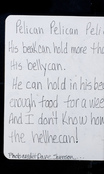 Pelican Pelican Peli
His beak can hold more tha
His belly can.
He can hold in his bea
enough food for a wee
And I don't know how
the hellhe can!